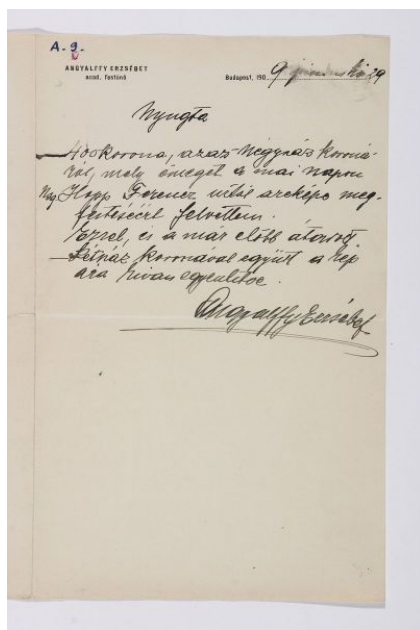 A. 9.
ANGYALFFY ERZSÉBET
acad. festőnő
Budapest, 190 9 29
Nyugta
400 korona, azaz négyszáz koroná-
ról, mely összeget a mai napon
Nag. Hopp Ferencz úrtól arcképe meg-
festéséért felvettem.
Ezzel, és a már előbb átadott
kétszáz koronával együtt a kép
ára ki van egyenlítve.
Angyalffy Erzsébet